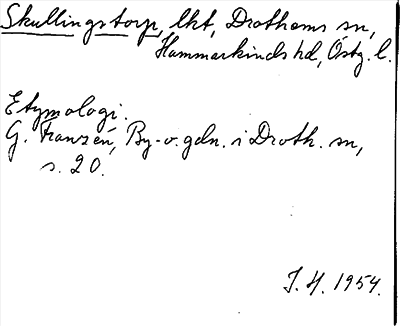 Skullingstorp, lht, Drothems sn,
Hammarkinds hd, Östg. l.
Etymologi:
G. Franzén, By- o. gdn. i Droth. sn,
s. 20.
J. H. 1954.